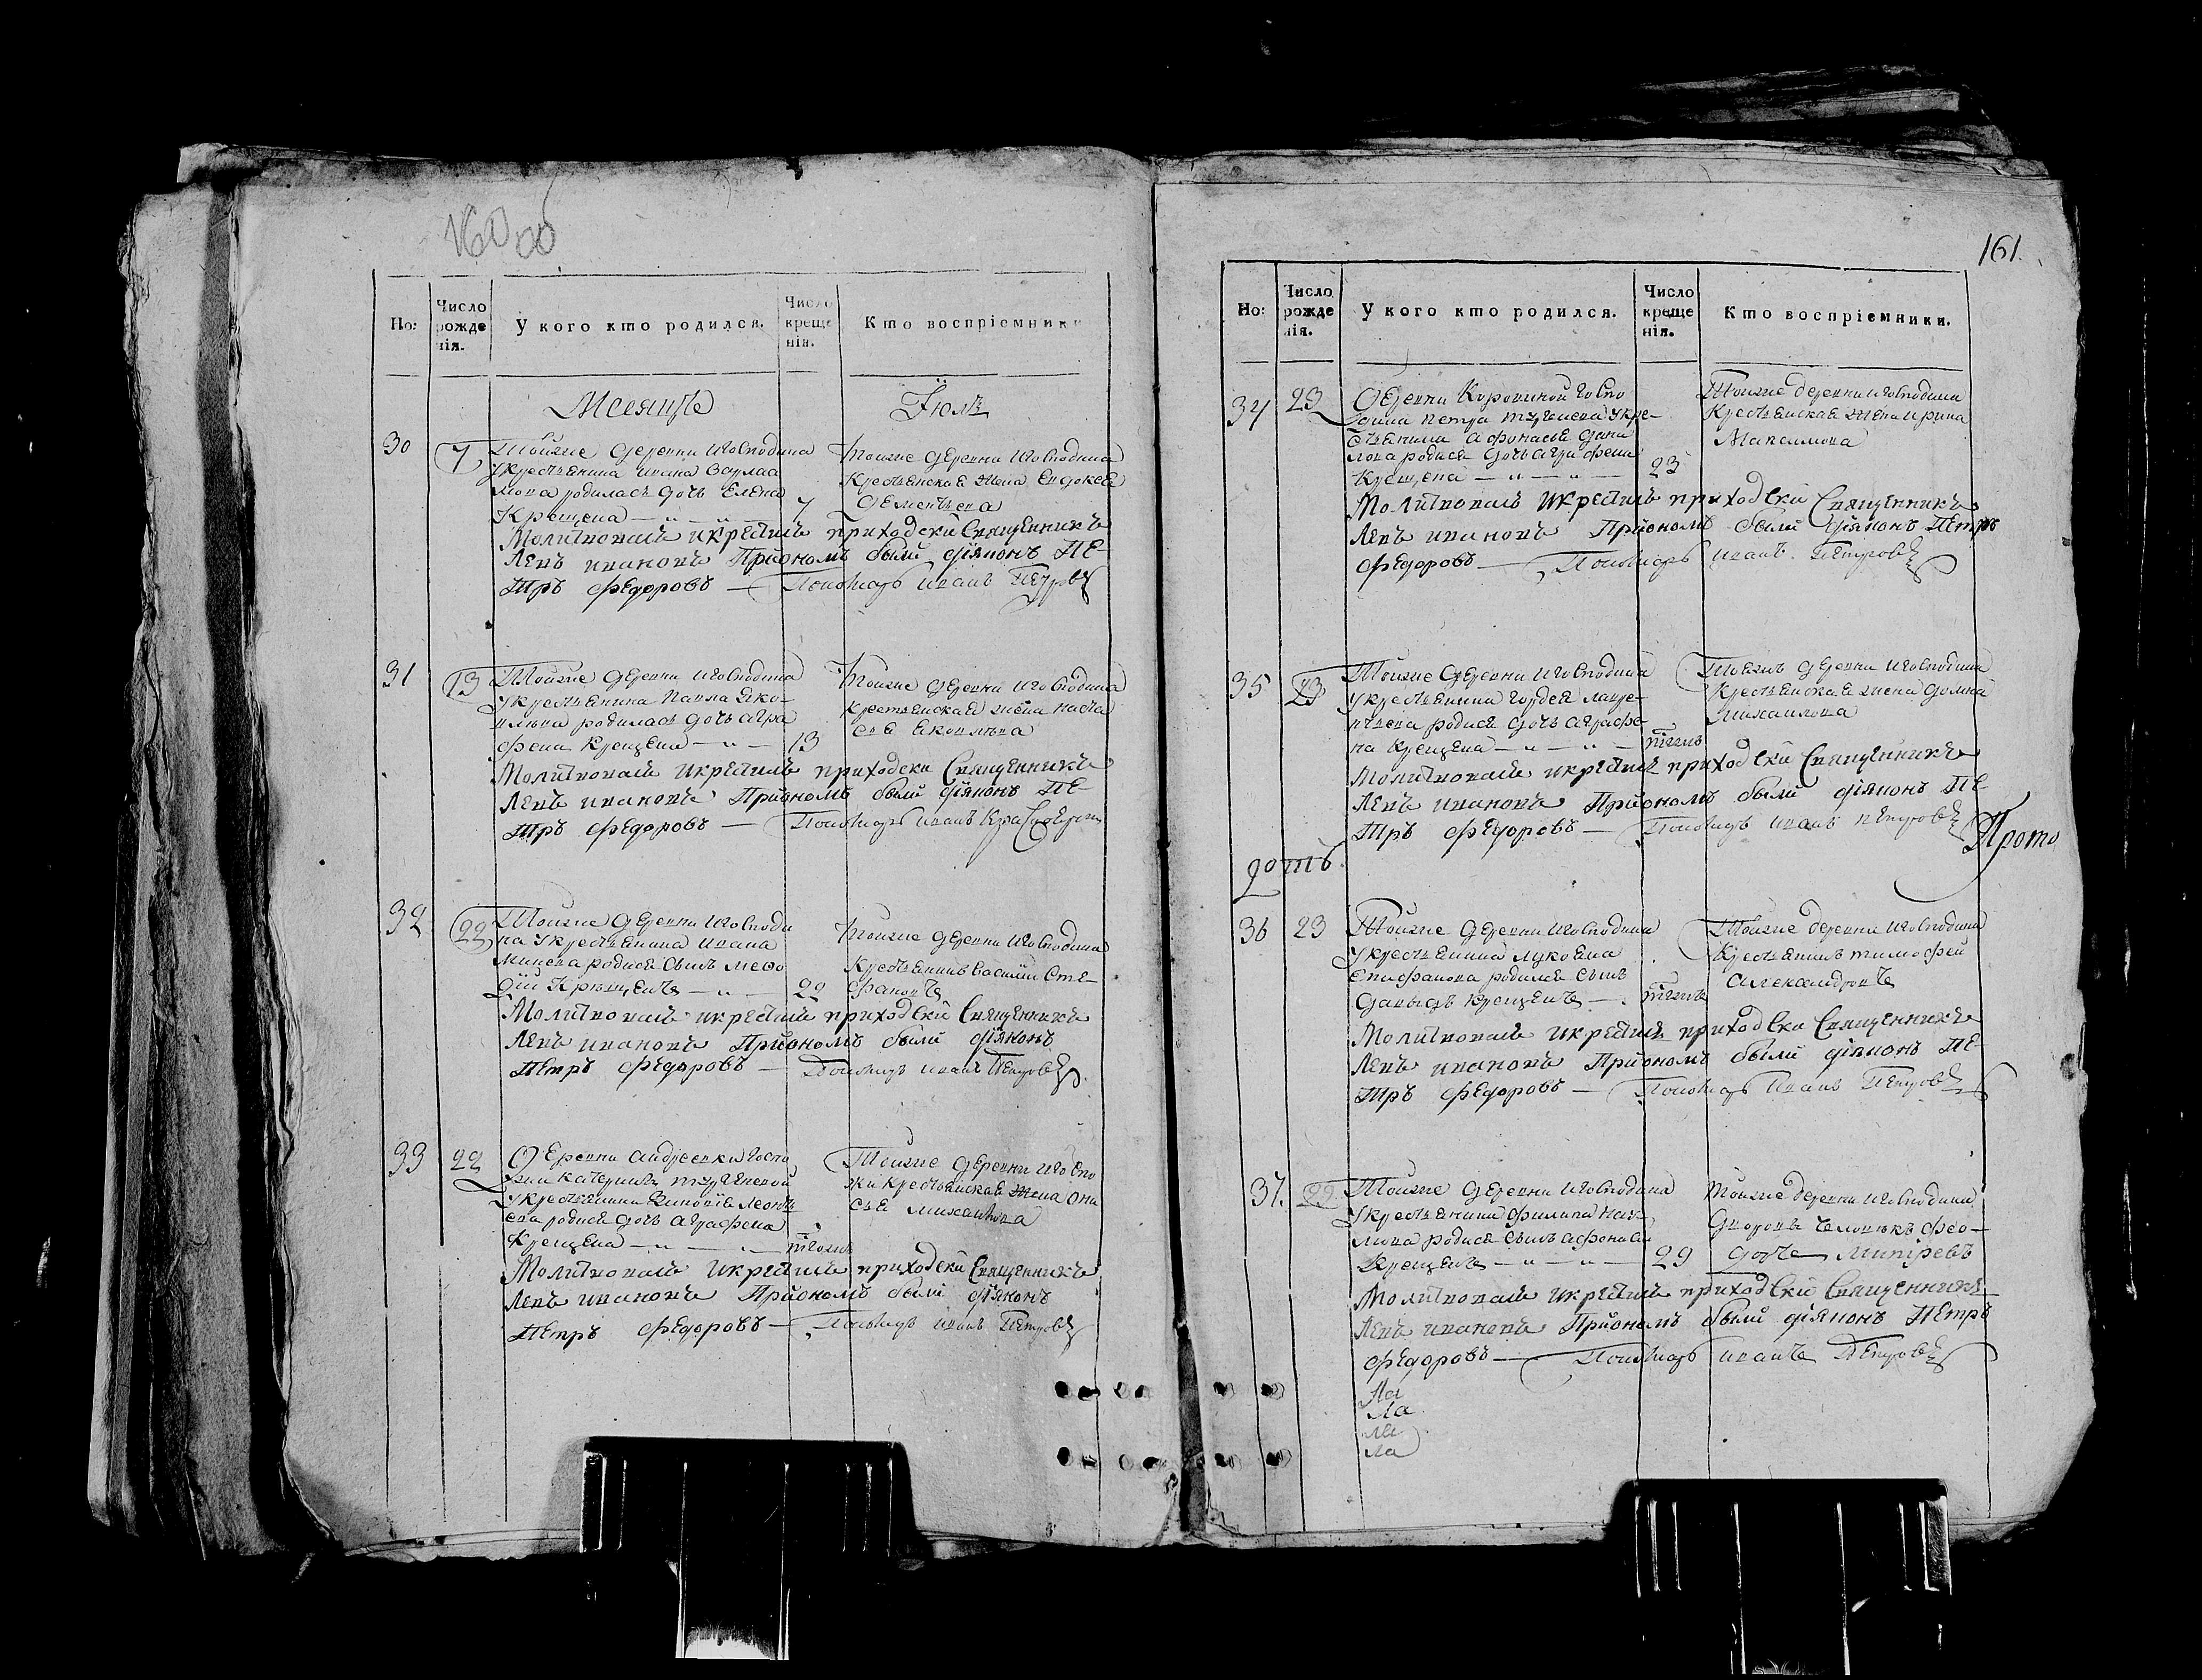 160 об
Но:
Число рожденія.
У кого кто родился.
Число крещенія.
Кто воспріемники
Мсеяцъ Іюль
30
7
Тойже деревни игосподина
укрестьенина ивана варлаа
мова родилась дочь Елена
Крещена — „ — „ — 7
тоиже деревни игосподина
Крестьенская жена евдокея
дементьева
Молитвовалъ икрестилъ приходски Священникъ
Левъ ивановъ Приономъ были діяконъ ПЕ-
тръ федоровъ — Пономарь иванъ Петровъ
31
13
Тойже деревни игосподина
укрестьенина павла яко-
влева родилась дочь агра
фена Крещена — „ — 13
тоиже деревни игосподина
крестьенская жена наста
сея яковлева
Молитвовалъ икрестилъ приходски Священникъ
Левъ ивановъ Приономъ были діяконъ ПЕ-
тръ федоровъ — Пономарь иванъ
32
22
Тойже деревни игосподи
на укрестьенина ивана
Минева родися сынъ мефо
дій Крещенъ — „ — 22
тоиже деревни игосподина
Крестьенинъ василии Сте-
фановъ
Молитвовалъ икрестилъ приходски Священникъ
Левъ ивановъ Приономъ были діяконъ
Петръ федоровъ — Пономарь иванъ Петровъ
33
22
Деревни андреевки госпо
жи катерины тургеневой
укрестьенина Зиновіе леонть
ева родися дочь аграфена
Крещена — „ — „ — тогожъ
Тойже деревни игоспо
жи крестьенская жена они
сея михаилова
Молитвовалъ икрестилъ приходски Священникъ
Левъ ивановъ Приономъ были діяконъ
Петръ федоровъ — Пономарь иванъ Петровъ
161.
Но:
Число рожденія.
У кого кто родился.
Число крещенія.
Кто воспріемники.
34
23
Деревни Коровиной госпо
дина петра тургенева укре-
стьенина афонасея дани
лова родися дочь агрифена
Крещена — „ — „ — 23
Тоиже деревни игосподина
Крестьенская жена ирина
Максимова
Молитвовалъ икрестилъ приходски Священникъ
Левъ ивановъ Приономъ были діяконъ Петръ
федоровъ — Пономарь иванъ Петровъ
35
23
Тойже деревни игосподина
укрестьенина гордея лавре-
нтьева родися дочь аграфе-
на Крещена — „ — „ — тогожъ
Тоежъ деревни игосподина
Крестьенская жена домна
михаилова
Молитвовалъ икрестилъ приходски Священникъ
Левъ ивановъ Приономъ были діяконъ ПЕ-
тръ федоровъ — Пономарь иванъ петровъ
Прото
36
23
Тойже деревни игосподина
укрестьенина лукояна
епифанова родился сынъ
давыдъ крещенъ — тогожъ
Тойже деревни игосподина
Крестьенинъ тимофей
александровъ
Молитвовалъ икрестилъ приходски Священникъ
Левъ ивановъ Приономъ были діяконъ ПЕ-
тръ федоровъ — Пономарь иванъ Петровъ
37.
29
Тойже деревни игосподина
укрестьенина филипа нау-
мова родися сынъ афонаси
Крещенъ — „ — „ — 29
тоиже деревни игосподина
дворовы человекъ фео-
Молитвовалъ икрестилъ приходски Священникъ
Левъ ивановъ Приономъ были діяконъ Петръ
федоровъ — Пономарь иванъ Петровъ
Ла
Ла
ла
ла